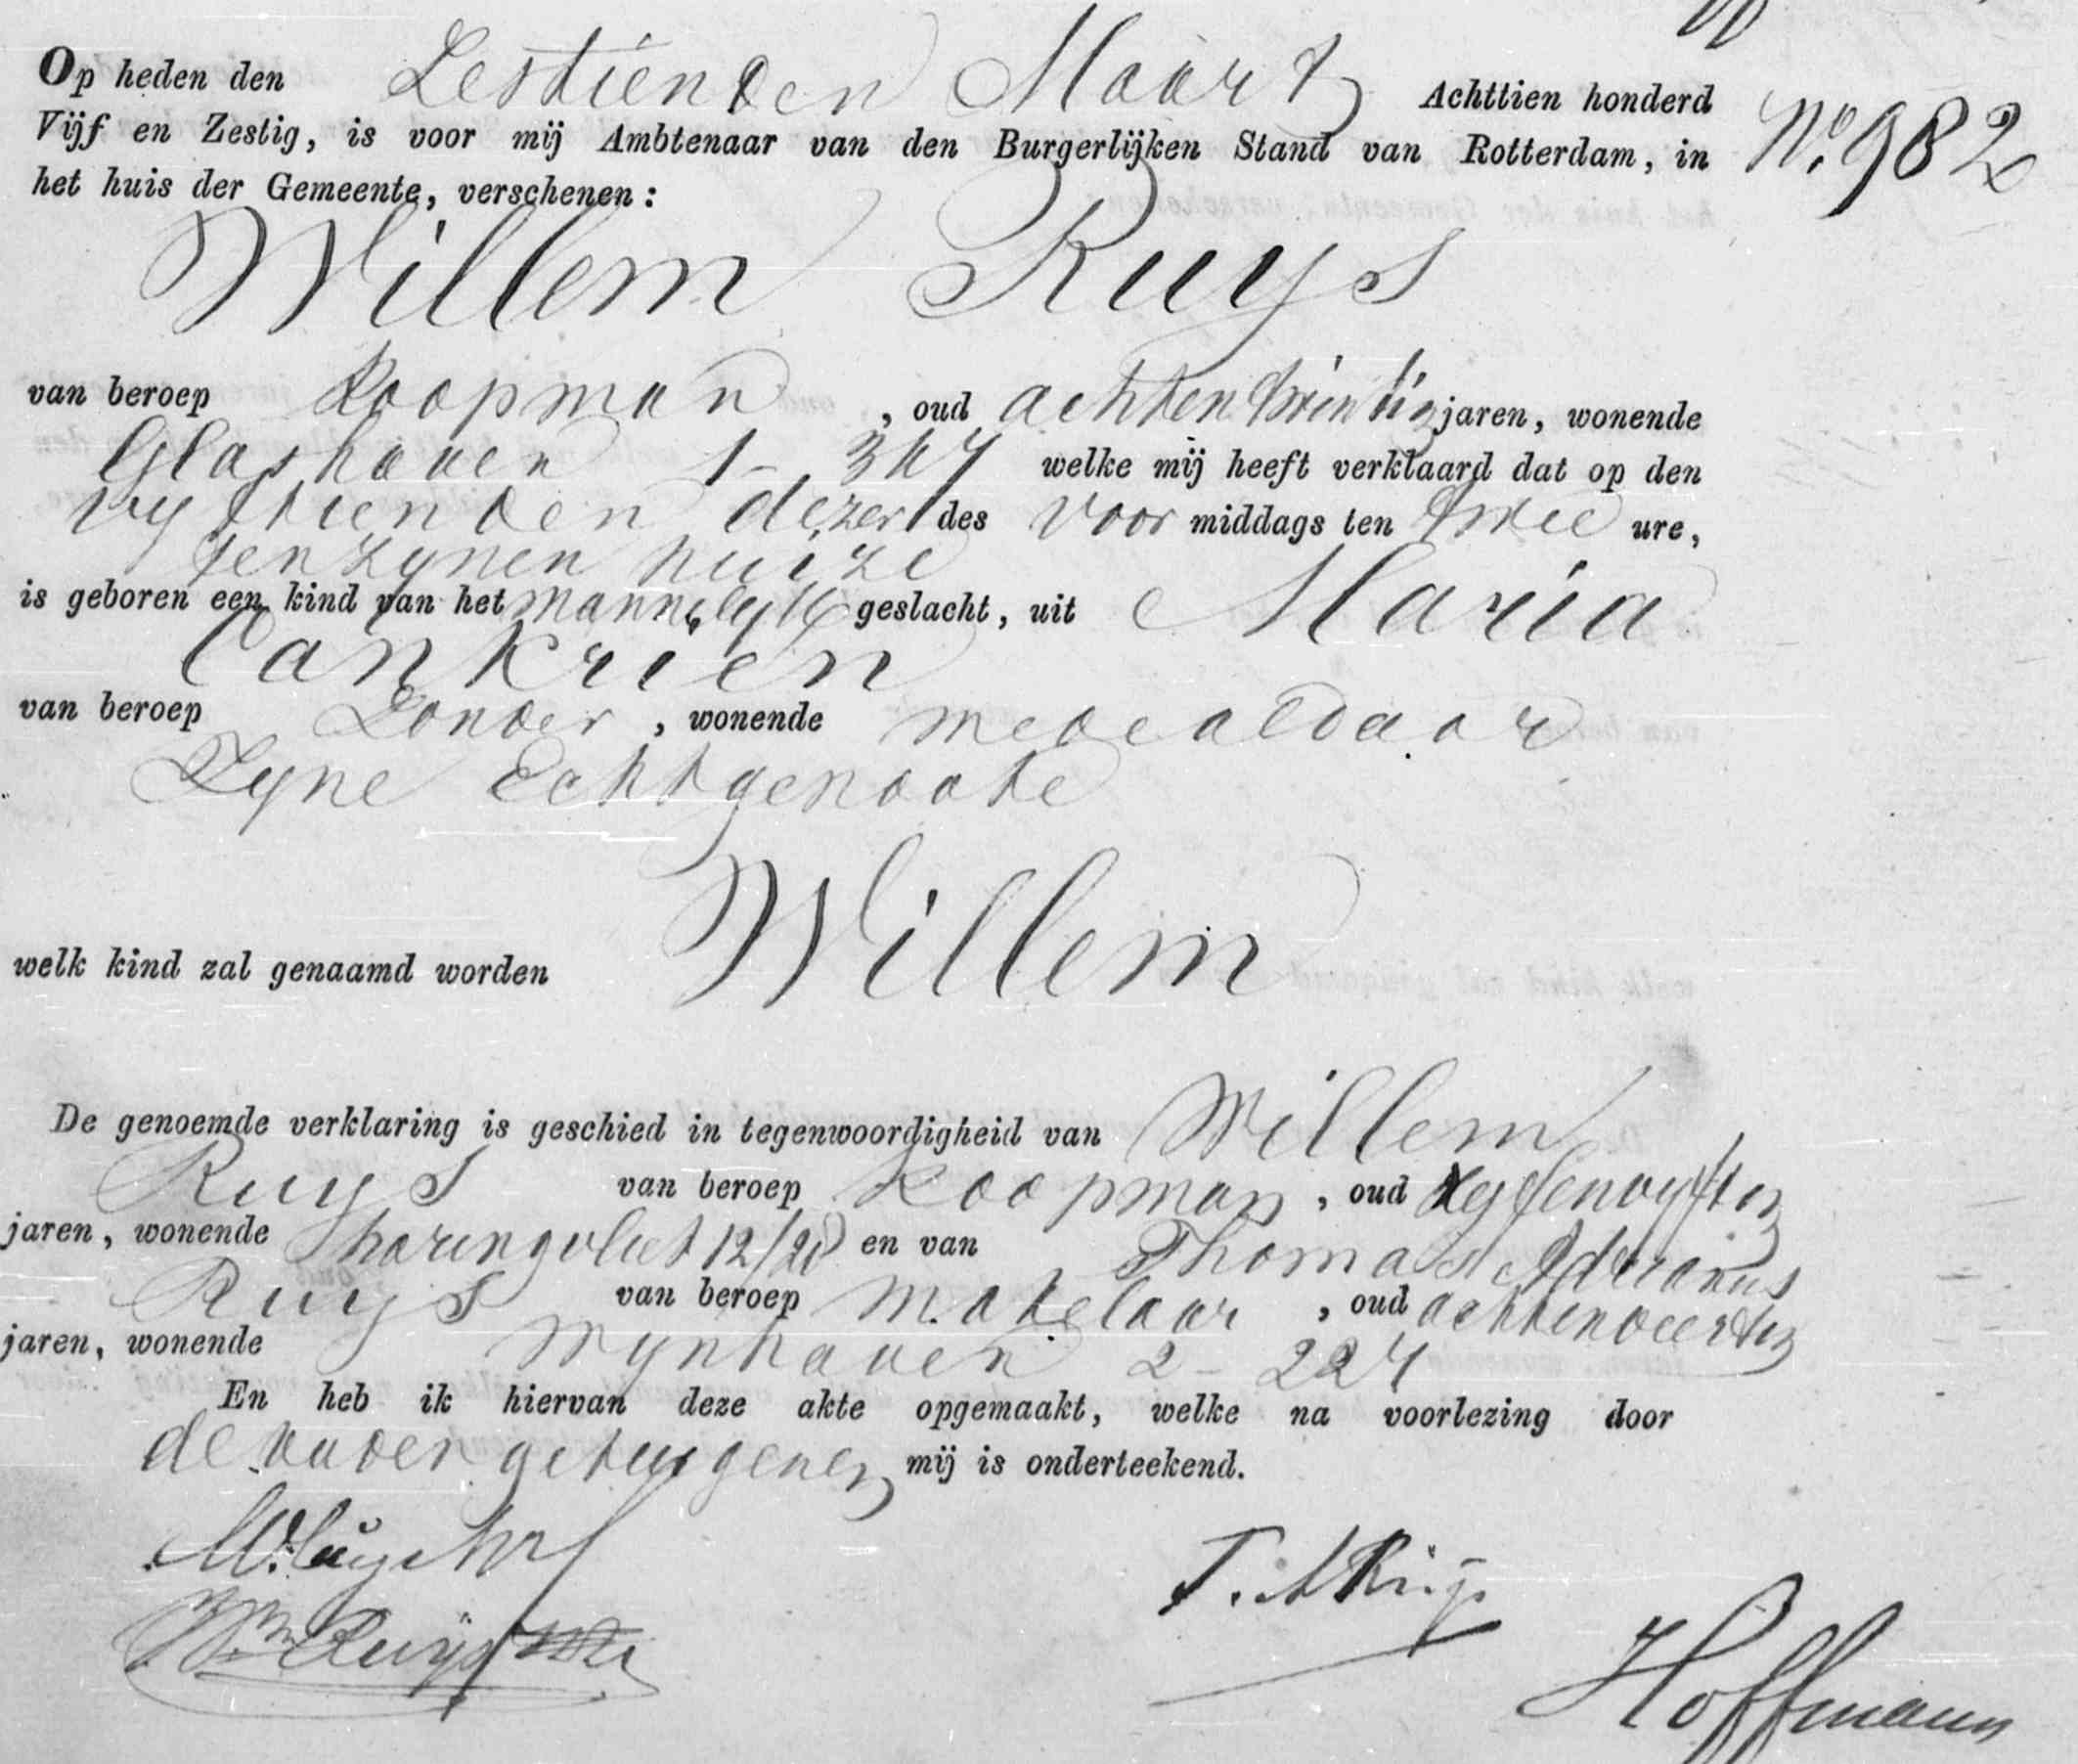 Op heden den Zestienden Maart Achttien honderd
Vijf en Zestig, is voor mij Ambtenaar van den Burgerlijken Stand van Rotterdam, in No. 982
het huis der Gemeente, verschenen:
Willem Ruys
van beroep Koopman, oud achtentwintig jaren, wonende
Glashaven 1- 347 welke mij heeft verklaard dat op den
vyftienden dezer des Voor middags ten twee ure,
tenzynen huize
is geboren een kind van het mannelyk geslacht, uit Maria
Cankrien
van beroep Zonder, wonende medealdaar
Zyne Echtgenoote
Willem
welk kind zal genaamd worden
De genoemde verklaring is geschied in tegenwoordigheid van Willem
Ruys van beroep Koopman, oud vyfenvyftig
jaren, wonende haringvliet 12/ en van Thomas Adrianus
Ruys van beroep makelaar, oud achtenveertig
jaren, wonende Wynhaven 2- 224
En heb ik hiervan deze akte opgemaakt, welke na voorlezing door
de vader getuigenen mij is onderteekend.
T. A Ruijs
Wm Ruijs
Hoffmann